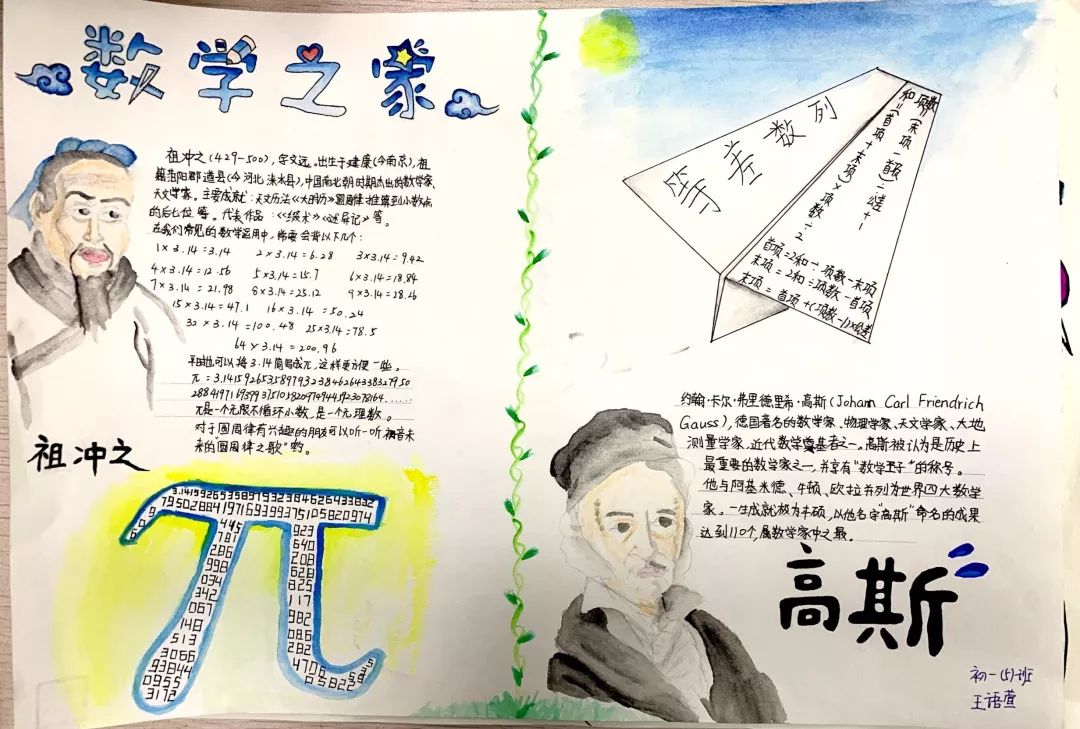 数学之家
祖冲之(429-500),字文远。出生于建康(今南京),祖
籍范阳郡遒县(今河北涞水县),中国南北朝时期杰出的数学家、
天文学家。主要成就:天文历法《大明历》圆周率推算到小数点
的后七位等。代表作品:《缀术》《述异记》等。
在我们常见的数学运用中,需要会背以下几个:
1×3.14=3.14 2×3.14=6.28 3×3.14=9.42
4×3.14=12.56 5×3.14=15.7 6×3.14=18.84
7×3.14=21.98 8×3.14=25.12 9×3.14=28.26
15×3.14=47.1 16×3.14=50.24
32×3.14=100.48 25×3.14=78.5
64×3.14=200.96
平时也可以将3.14简写成π,这样更方便一些。
π=3.14159265358979323846264338327950
28841971693993751058209749445923078164......
π是一个无限不循环小数,是一个无理数。
对于圆周率有兴趣的朋友可以听一听
来的"圆周率之歌"哟。
祖冲之
3.1415926535897932384626433832
79502884197169399375105820974
9
4
445
781
286
998
034
342
067
148
513
3066
93844
0955
3172
923
640
208
628
825
117
982
086
282
470
等差数列
和=(首项+末项)×项数÷2
项数=(末项-首项)÷公差+1
首项=2和÷项数-末项
末项=2和÷项数-首项
末项=首项+(项数-1)×公差
约翰·卡尔·弗里德里希·高斯(Johann Carl Friendrich
Gauss),德国著名的数学家、物理学家、天文学家、大地
测量学家,近代数学奠基者之一。高斯被认为是历史上
最重要的数学家之一,并享有"数学王子"的称号。
他与阿基米德、牛顿、欧拉并列为世界四大数学
家。一生成就极为丰硕,以他名字"高斯"命名的成果
达到110个,属数学家中之最。
高斯
初一(5)班
王语萱